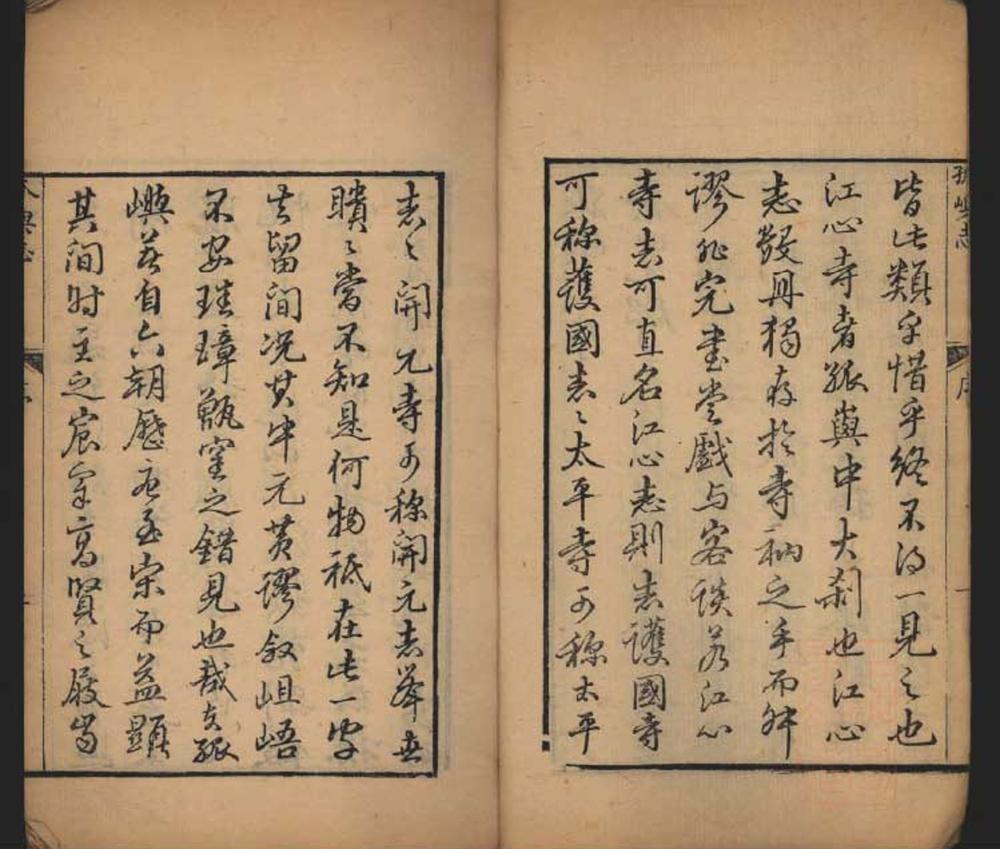 孤嶼志
序
一
皆此類乎惜乎終不得一見之也
江心寺者孤嶼中大刹也江心
志毀毋獨存於寺衲之手而舛
謬非完書嘗戲与客談若江心
寺志可直名江心志則志護國寺
可称護國志志太平寺可称太平
志志開元寺可称開元志舉世
瞶瞶當不知是何物秪在此一字
去留間况其中元黄謬叙岨峿
不安珪璋甎室之錯見也哉夫孤
嶼若自六朝歷唐至宋而益顯
其間時主之宸宗高賢之屐